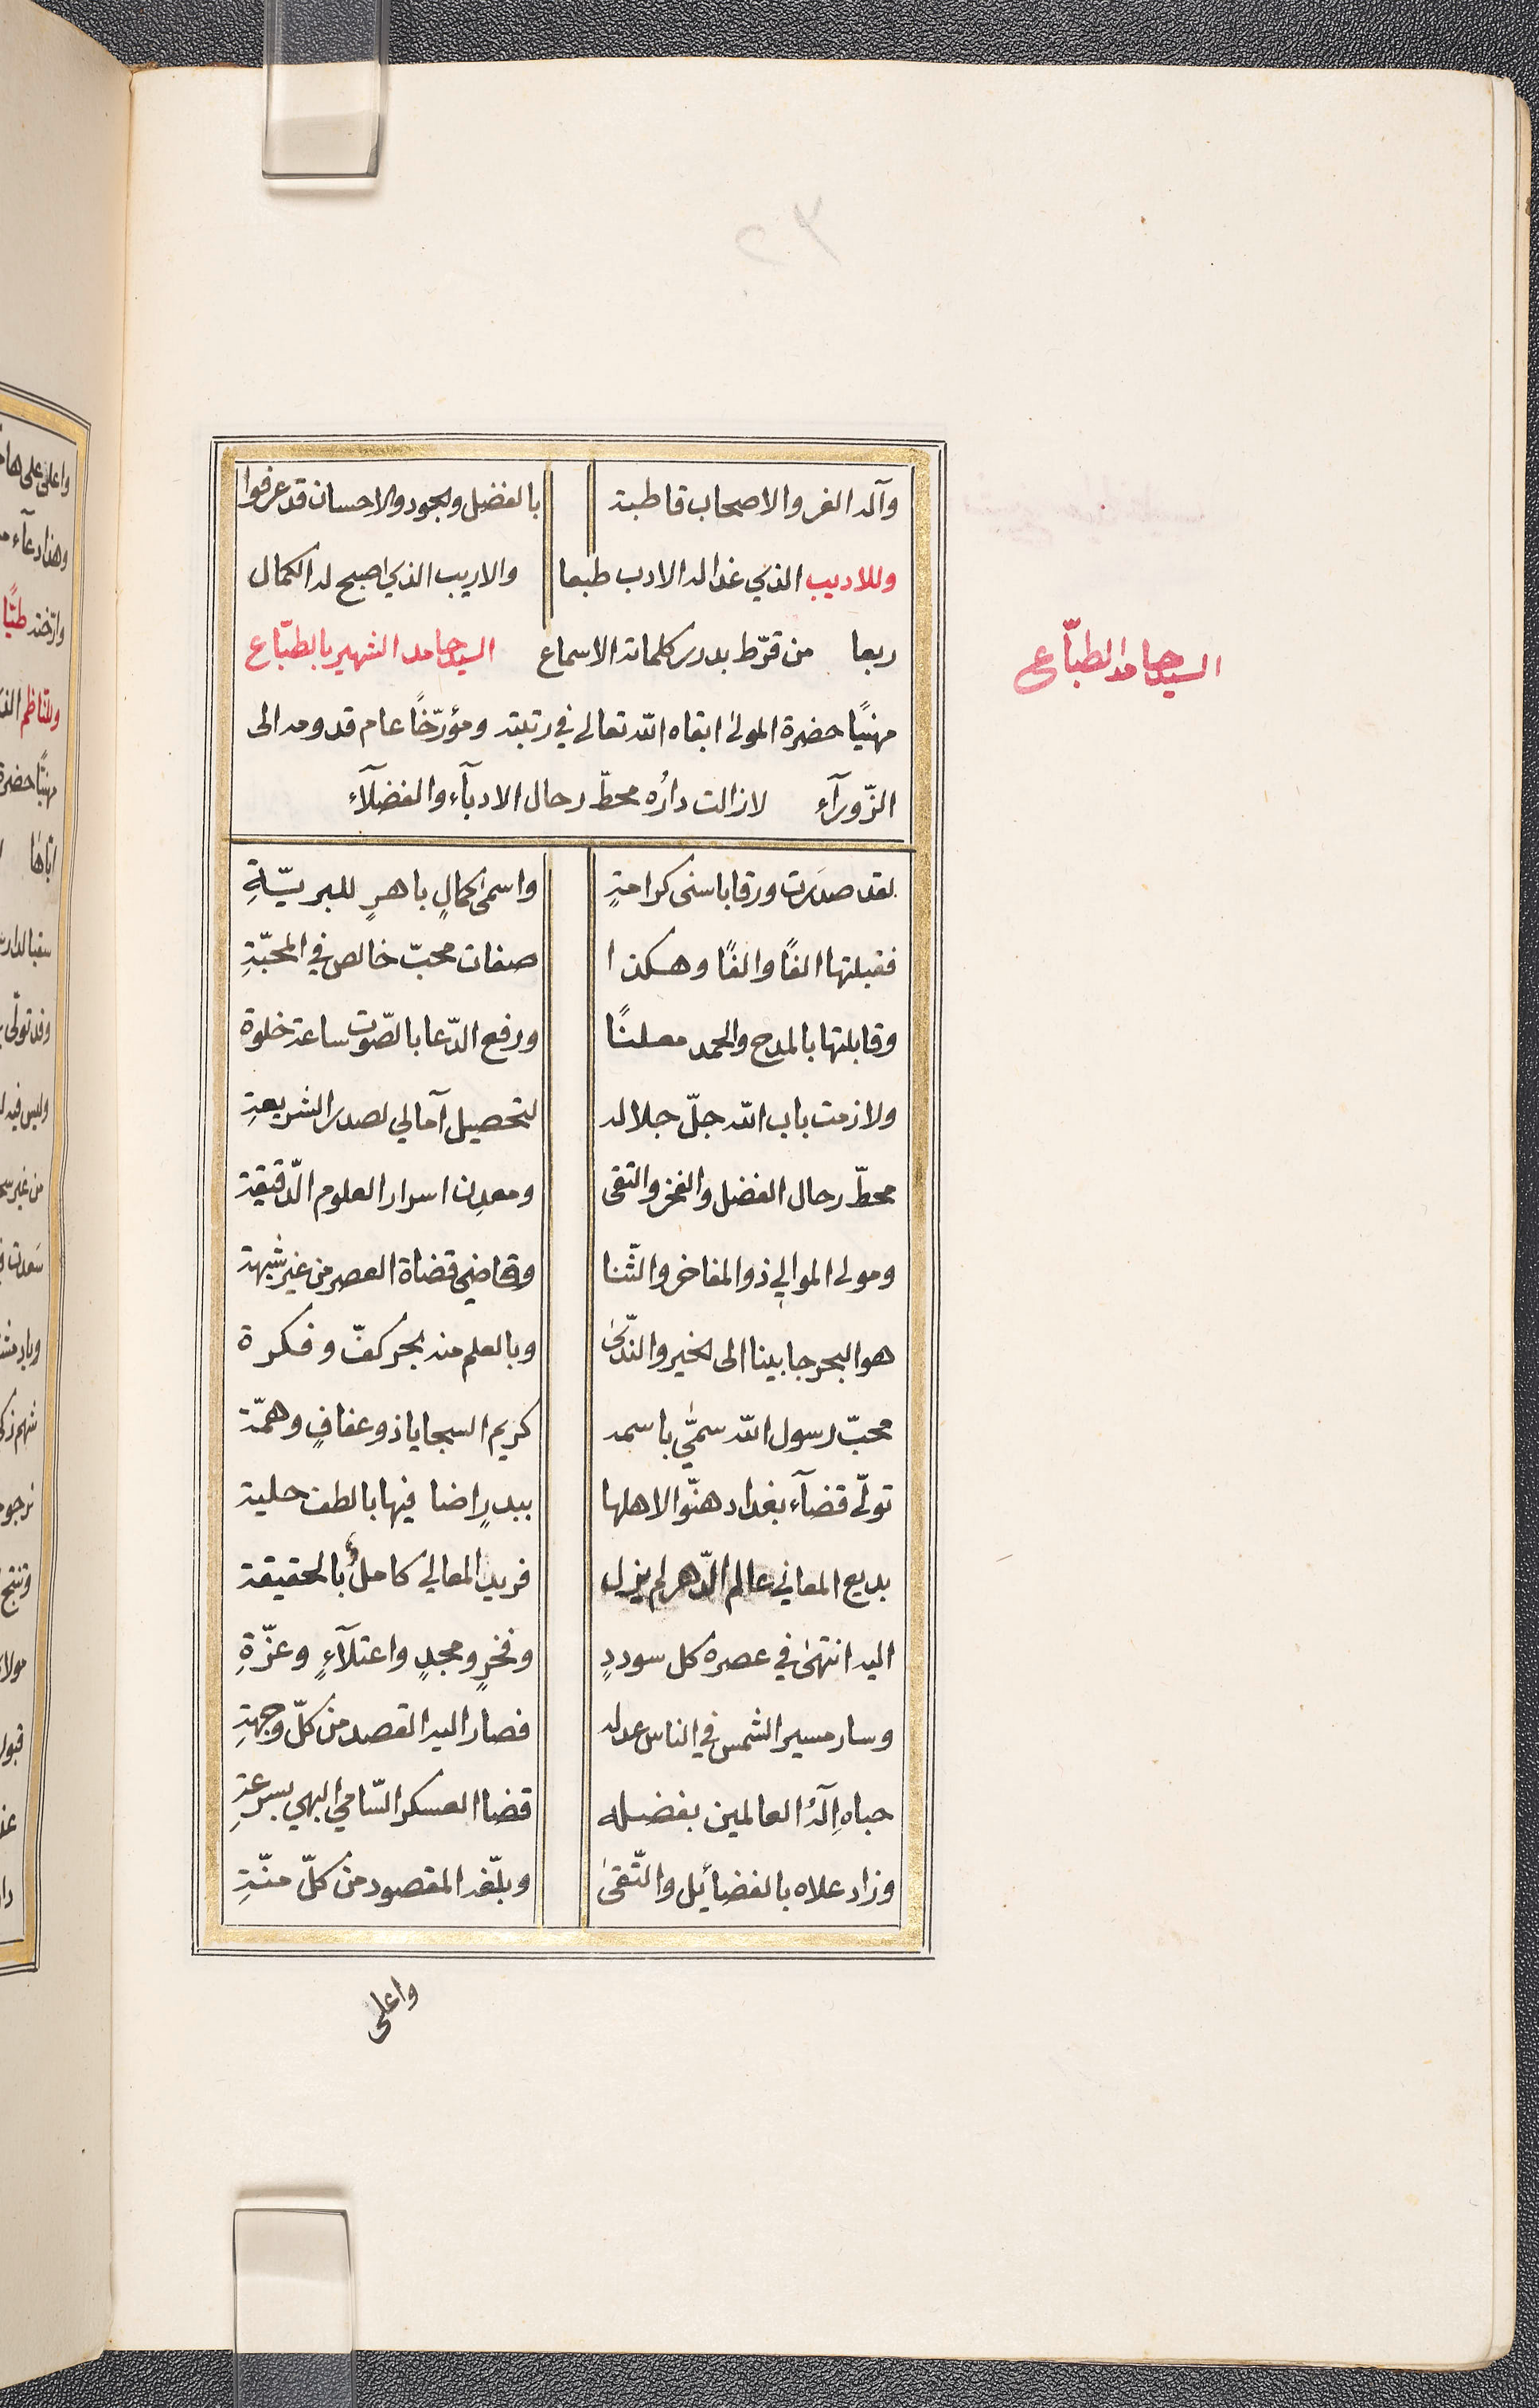 وآله الغر والاصحاب قاطبة بالفضل والجود والاحسان قد عرفوا
وللاديب الذي غدا له الادب طبعا والاريب الذي اصبح له الكمال
ربعا من قرّط بدرر كلماته الاسماع السيد حامد الشهير بالطبّاع
السيد حامد الطبّاع
مهنيًا حضرة المولى ابقاه الله تعالى في رتبته ومؤرّخًا عام قدومه الى
الزّورآء لازالت داره محطّ رحال الادبآء والفضلآء
لقد صدَرت ورقا باسنى كرامةٍ واسمى كمالٍ باهرٍ للبريّةِ
فقبلتها الفًا والفًا وهكذا صفات محبّ خالص في المحبّةِ
وقابلتها بالمدح والحمد معلنًا ورفع الدّعا بالصّوت ساعة خلوة
ولازمت باب الله جلّ جلاله لتحصيل آمالي لصدر الشريعةِ
محطّ رحال الفضل والفخر والتقى ومعدِن اسرار العلوم الدّقيقة
ومولى الموالي ذو المفاخر والثّنا وقاضي قضاة العصر من غير شبهة
هو البحر جا بينا الى الخير والنّدىٰ وبالعلم منه بحر كفّ وفكرة
محبّ رسول الله سميّ باسمه كريم السجايا ذو عفافٍ وهمّة
تولّى قضآء بغداد هنّوا لاهلها ببدرٍ اضا فيها بالطف حلية
بديع المعاني عالم الدّهر لم يزل فريد المعالي كاملٌ بالحقيقة
اليه انتهىٰ في عصره كل سوددٍ وفخرٍ ومجدٍ واعتلآءٍ وعزّةِ
وسار مسير الشمس في الناس عدله فصار اليه القصد من كلّ وجهةِ
حباه إِلٓهُ العالمين بفضله قضا العسكر السّامي البهي بسرعةِ
وزاد علاه بالفضائل والتّقىٰ وبلّغه المقصود من كلّ منّةِ
واعلى